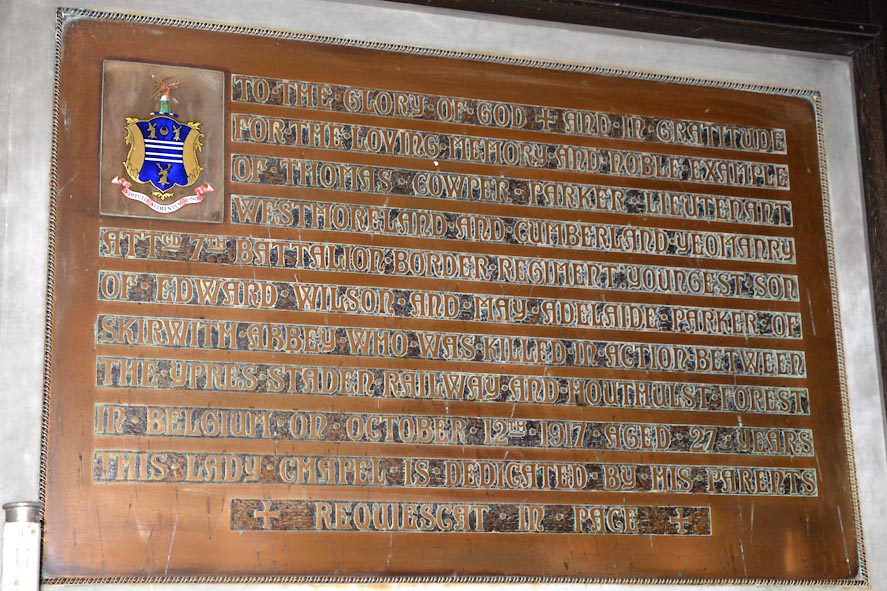 TO THE GLORY OF GOD + AND IN GRATITUDE
FOR THE LOVING MEMORY AND NOBLE EXAMPLE
OF THOMAS COWPER PARKER LIEUTENANT
WESTMORELAND AND CUMBERLAND YEOMANRY
ATTCD 7TH BATTALION BORDER REGIMENT YOUNGEST SON
OF EDWARD WILSON AND MAY ADELAIDE PARKER OF
SKIRWITH ABBEY WHO WAS KILLED IN ACTION BETWEEN
THE YPRES STADEN RAILWAY AND HOUTHULST FOREST
IN BELGIUM ON OCTOBER 12TH 1917 AGED 27 YEARS
THIS LADY CHAPEL IS DEDICATED BY HIS PARENTS
+ REQUIESCAT IN PACE +